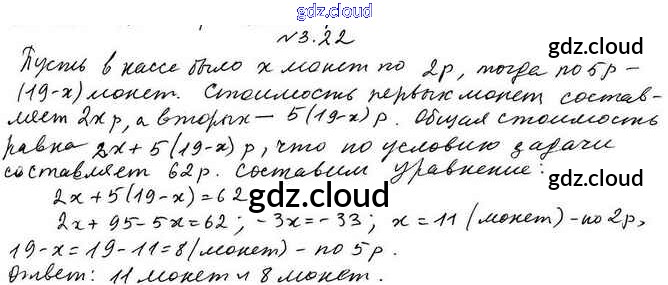 gdz.cloud
№3.22
gdz.cloud
Пусть в кассе было x монет по 2р, тогда по 5р –
(19-x) монет. Стоимость первых монет состав-
ляет 2x р, а вторых – 5(19-x) р. Общая стоимость
равна 2x + 5(19-x) р, что по условию задачи
составляет 62р. Составим уравнение:
2x + 5(19-x) = 62
gdz.cloud
gdz.cloud
2x + 95 - 5x = 62; -3x = -33; x = 11 (монет) - по 2р,
19 - x = 19 - 11 = 8 (монет) - по 5р.
Ответ: 11 монет и 8 монет.